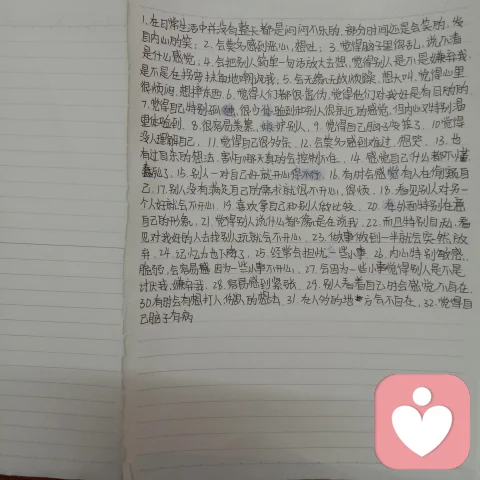 1.在日常生活中并没有整天都是闷闷不乐的,部分时间还是会笑的,发
自内心的笑;2.会莫名感到恶心,想吐;3.觉得脑子里很乱,说不清
是什么感觉;4.会把别人简单一句话放大去想,觉得别人是不是嫌弃我
是不是在拐弯抹角地嘲讽我.5.会无缘无故烦躁、想大叫.觉得心里
很烦闷,想摔东西.6.觉得人们都很虚伪,觉得他们对我好是有目的的
7.觉得自己特别孤独,很少体验到和别人很亲近的感觉,但内心又特别渴
望体验到.8.很容易羡慕、嫉妒别人.9.觉得自己脑子变笨了.10觉得
没人理解自己.11.觉得自己很没用.12.会莫名感到难过,想哭.13.也
有过自杀的想法,害怕哪天真的会控制不住.14.感觉自己什么都不懂
15.别人一对自己好就开心得不行.16.有时会感觉有人在偷跟
己.17.别人没有满足自己的需求就很不开心,很烦.18.看见别人对另一
个人好就会不开心.19.喜欢拿自己和别人做比较.20.在外面特别在意
自己的形象.21.觉得别人说什么都像是在说我.22.而且特别自私,看
见对我好的人去找别人玩就会不开心.23.做事做到一半就会突然放
弃.24.记忆力也下降了.25.经常会担忧一些小事.26.内心特别敏感、
脆弱,会容易因为一些小事不开心.27.会因为一些小事觉得别人是不是
讨厌我,嫌弃我.28.容易感到紧张.29.别人看着自己时会感觉不自在.
30.有时会有想打人、伤人的想法.31.在人多的地方会不自在.32.觉得自
己脑子有病